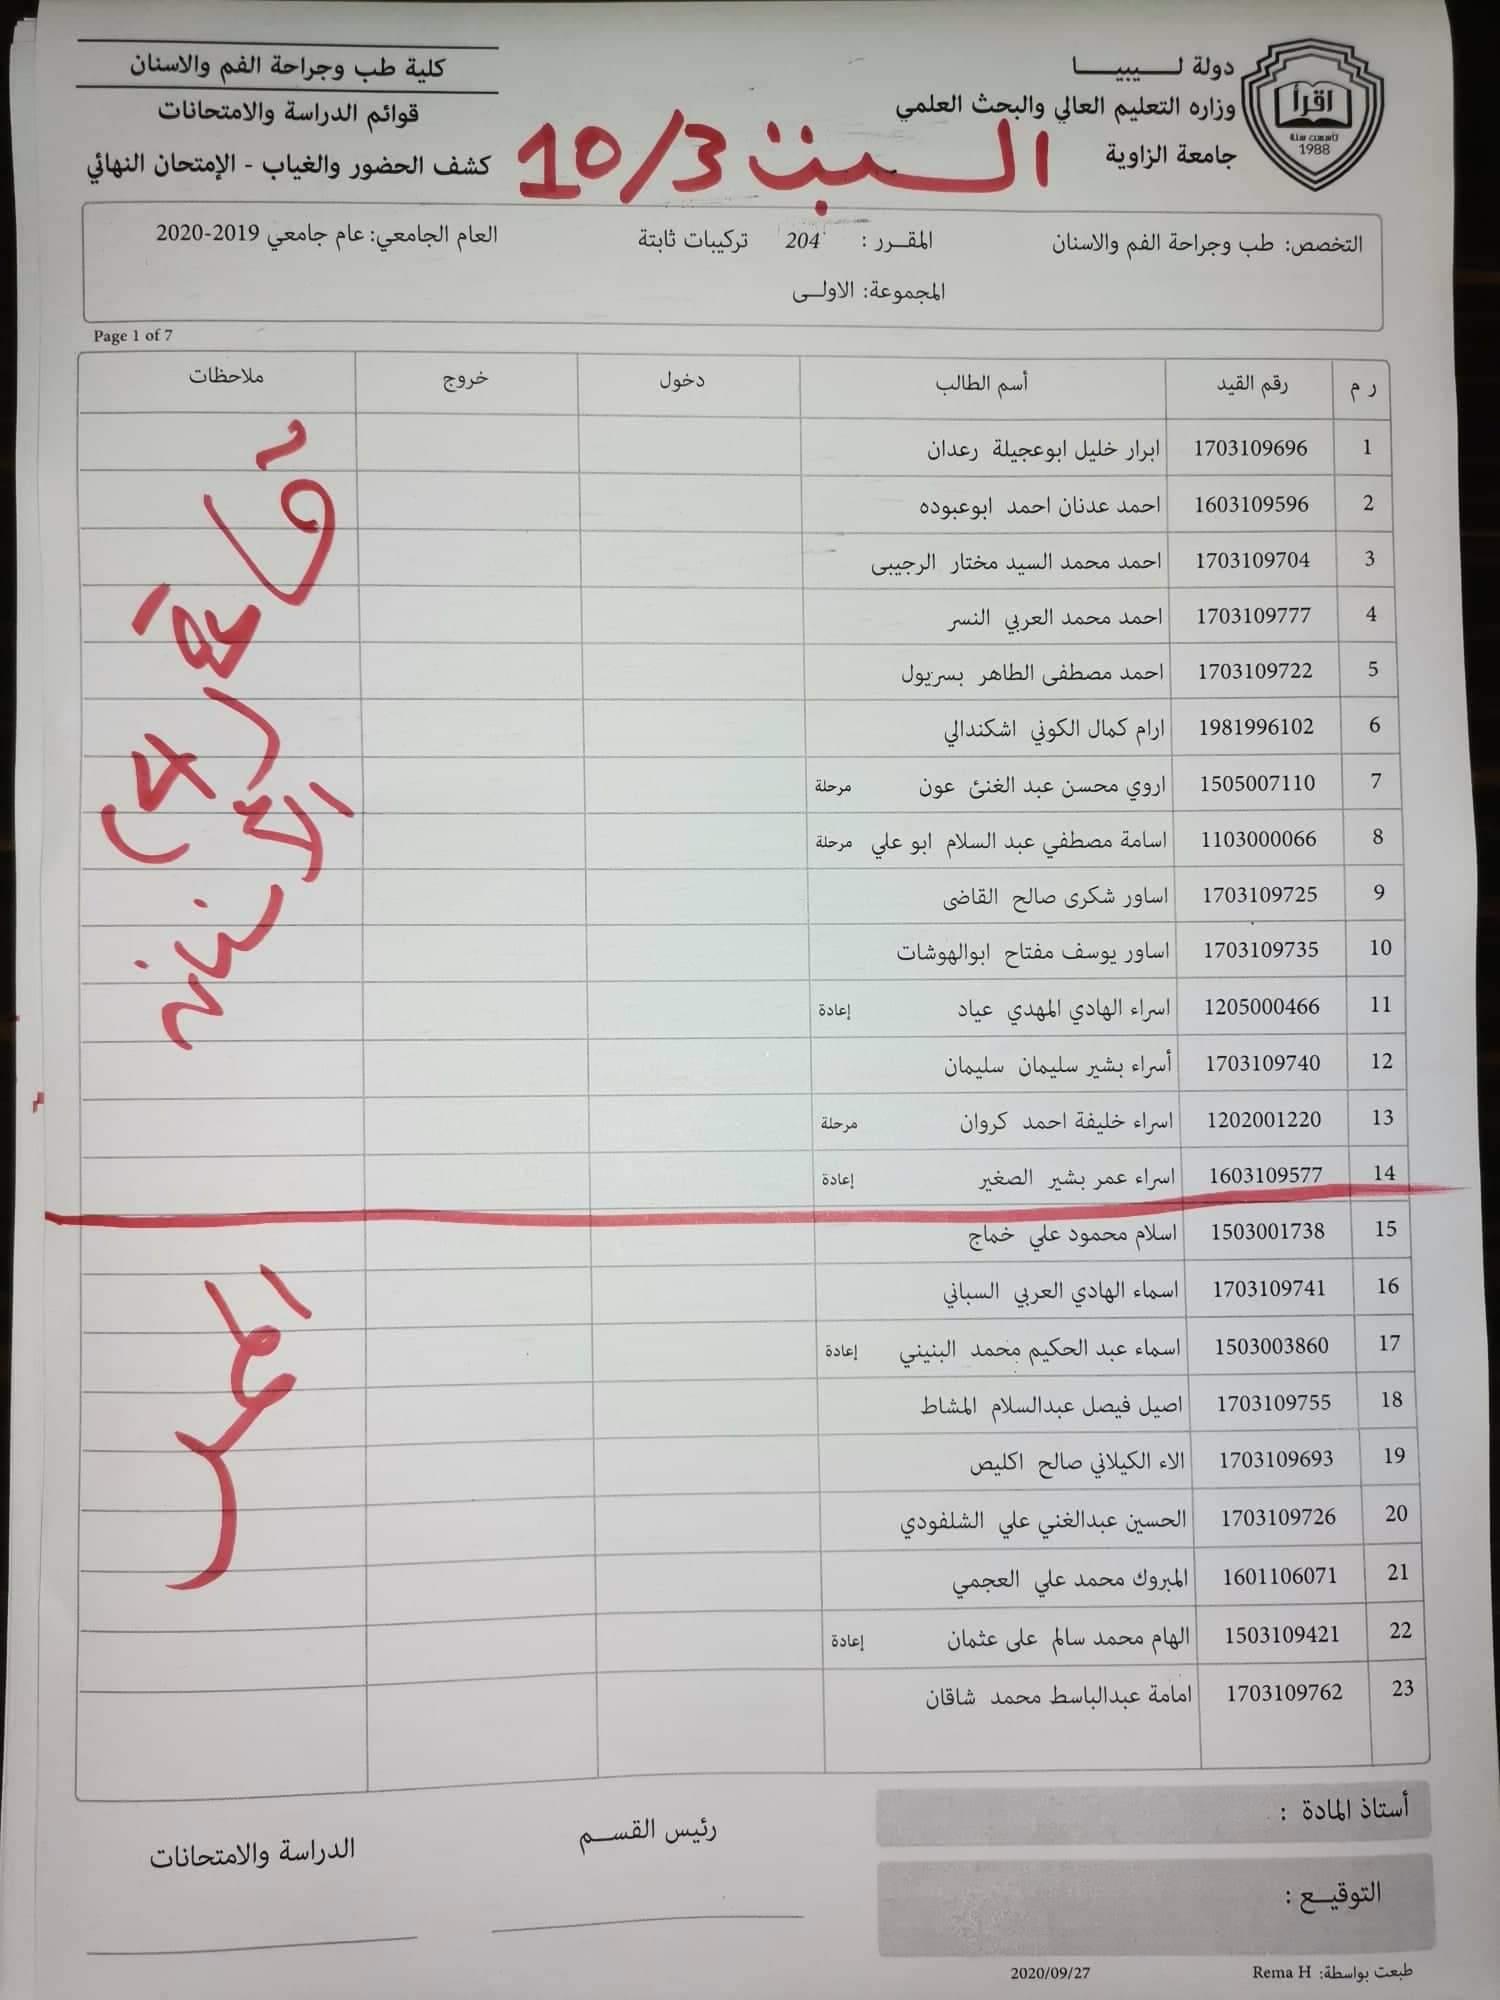 دولة لـــيبيـــا
وزاره التعليم العالي والبحث العلمي
جامعة الزاوية
اقرأ
تأسست سنة
1988
كلية طب وجراحة الفم والاسنان
قوائم الدراسة والامتحانات
كشف الحضور والغياب - الإمتحان النهائي
السبت 10/3
التخصص: طب وجراحة الفم والاسنان المقــرر : 204 تركيبات ثابتة العام الجامعي: عام جامعي 2019-2020
المجموعة: الاولــى
Page 1 of 7
ر م رقم القيد أسم الطالب دخول خروج ملاحظات
1 1703109696 ابرار خليل ابوعجيلة رعدان
2 1603109596 احمد عدنان احمد ابوعبوده
3 1703109704 احمد محمد السيد مختار الرجيبى
4 1703109777 احمد محمد العربي النسر
5 1703109722 احمد مصطفى الطاهر بسزيول
6 1981996102 ارام كمال الكوني اشكندالي
7 1505007110 اروي محسن عبد الغنئ عون مرحلة
8 1103000066 اسامة مصطفي عبد السلام ابو علي مرحلة
9 1703109725 اساور شكرى صالح القاضى
10 1703109735 اساور يوسف مفتاح ابوالهوشات
11 1205000466 اسراء الهادي المهدي عياد إعادة
12 1703109740 أسراء بشير سليمان سليمان
13 1202001220 اسراء خليفة احمد كروان مرحلة
14 1603109577 اسراء عمر بشير الصغير إعادة
قاعة (4)
الأسنان
15 1503001738 اسلام محمود علي خماج
16 1703109741 اسماء الهادي العربي السباني
17 1503003860 اسماء عبد الحكيم محمد البنيني إعادة
18 1703109755 اصيل فيصل عبدالسلام المشاط
19 1703109693 الاء الكيلاني صالح اكليص
20 1703109726 الحسين عبدالغني علي الشلفودي
21 1601106071 المبروك محمد علي العجمي
22 1503109421 الهام محمد سالم على عثمان إعادة
23 1703109762 امامة عبدالباسط محمد شاقان
أستاذ المادة :
التوقيــع :
رئيس القســم
الدراسة والامتحانات
طبعت بواسطة: Rema H 2020/09/27